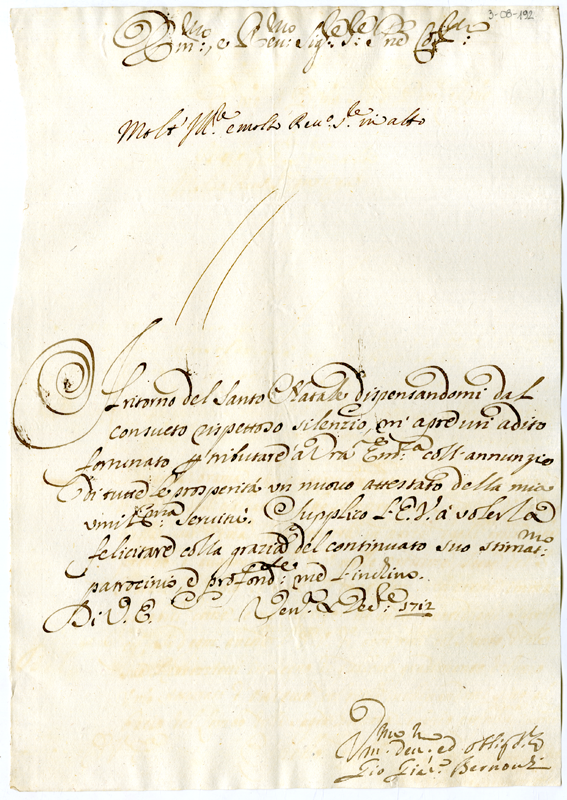 3-08-192
Em:mo, e Rev:mo Sig:re S:re P̃ne Col:mo
Molt' Ill:re e molto Reu:o S:re in alto
Il ritorno del Santo Natale dispensandomi dal
consueto rispettoso silenzio, m'apre un adito
fortunato p tributare à Vrã Em:a coll'annunzio
di tutte le prosperità un nuovo attestato della mia
umil:ma servitù. Supplico l'E.V. à volerla
felicitare colla grazia del continuato suo stimat:mo
patrocinio e profond:te me l'inchino.
Di V. E. Ven:a 1712
Um:mo Dev: ed obblig:
Gio: Bernou